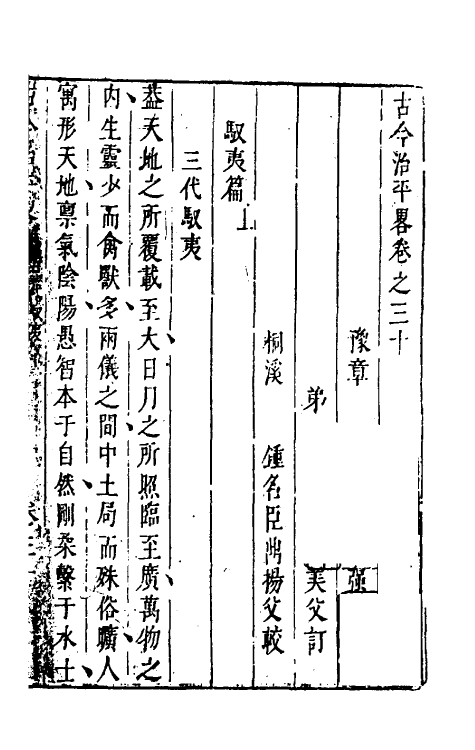 古今治平畧卷之三十
豫章
弟 美父訂
桐溪 鍾名臣 揚父較
馭夷篇上
三代馭夷
蓋天地之所覆載至大日月之所照臨至廣萬物之
内生靈少而禽獸多兩儀之間中土局而殊俗曠人
寓形天地禀氣陰陽愚智本于自然剛柔繫于水土